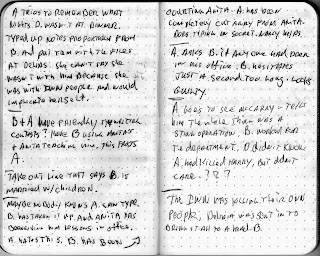 A TRIES TO REMEMBER WHAT
NOTES D. WASN'T AT DINNER,
TYPED UP NOTES
B. AND PUT THEM WITH THE FILES
AT DELIAS. SHE CAN'T SAY SHE
WASN'T WITH HIM BECAUSE SHE
WAS WITH IWW PEOPLE AND WOULD
IMPLICATE HERSELF.
B + A HAVE FRIENDLY TYPEWRITER
CONTESTS? HAVE B USING ANITAS
+ ANITA TEACHING HIM. THIS HURTS
A.
TAKE OUT LINE THAT SAYS B IS
MARRIED W/CHILDREN.
MAYBE NOBODY KNOWS A. CAN TYPE.
B. HAS TAKEN IT UP AND ANITA HAS
BEEN GIVING HIM LESSONS IN OFFICE.
A HATES THIS. B. HAS BEEN
COURTING ANITA. A. HAS BEEN
COMPLETELY CUT AWAY FROM ANITA.
DOES TYPING IN SECRET. NANCY HELPS.
A. ASKS B. IF ANYONE HAD BEEN
IN HIS OFFICE. B. HESITATES
JUST A SECOND TOO LONG. LOOKS
GUILTY.
A GOES TO SEE MCCARTHY - TELLS
HIM THE WHOLE THING WAS A
STING OPERATION. B. WORKED FOR
THE DEPARTMENT. D DIDN'T KNOW
A HAD KILLED HARRY, BUT DIDN'T
CARE. ? ? ?
THE IWW WAS KILLING THEIR OWN
PEOPLE, WAS SENT IN TO
BRING IT ALL TO A HEAD. B.